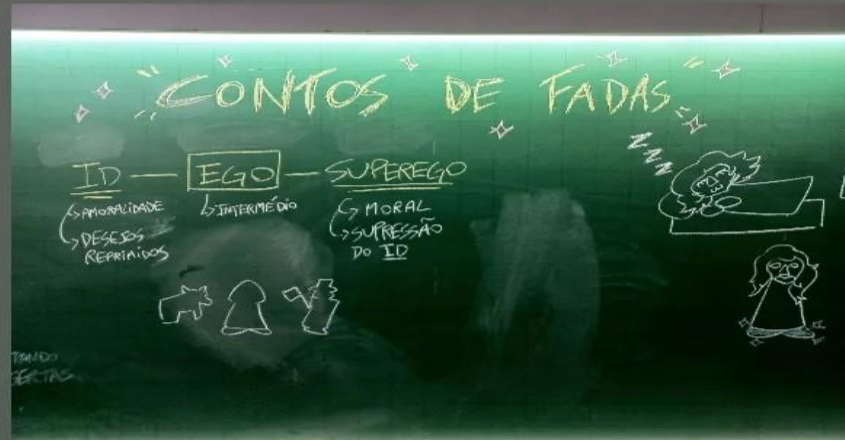 CONTOS DE FADAS
ID — EGO — SUPEREGO
↳ AMORALIDADE
↳ DESEJOS
REPRIMIDOS
↳ INTERMÉDIO
↳ MORAL
↳ SUPRESSÃO
DO ID
Z Z Z